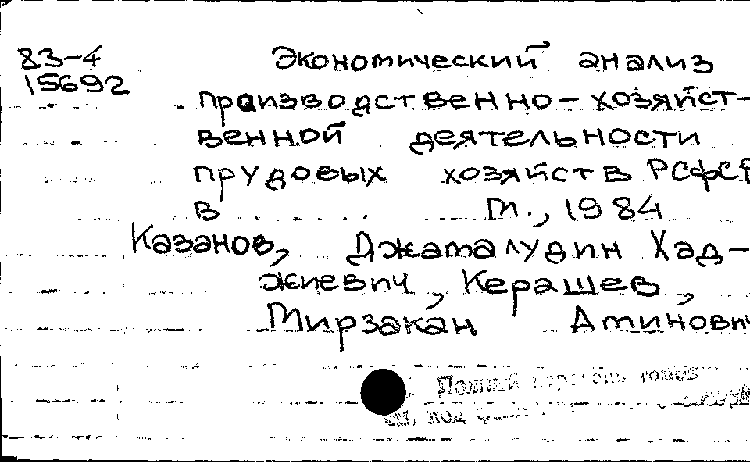 83-4 Экономический анализ
15692 производственно-хозяйст-
венной деятельности
прудовых хозяйств РСФСР
в ........ М., 1984
Казанов, Джамалудин Хад-
жиевич, Керашев,
Мирзакан Аминович
Полный
код